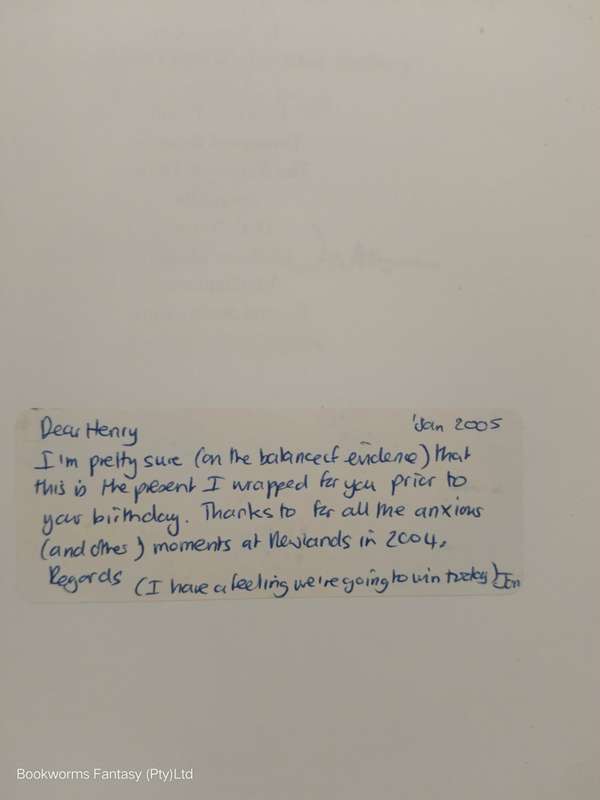 Dear Henry 'Jan 2005
I'm pretty sure (on the balance of evidence) that
this is the present I wrapped for you prior to
your birthday. Thanks to for all the anxious
(and other) moments at Newlands in 2004.
Regards (I have a feeling we're going to win today) Jon
Bookworms Fantasy (Pty)Ltd